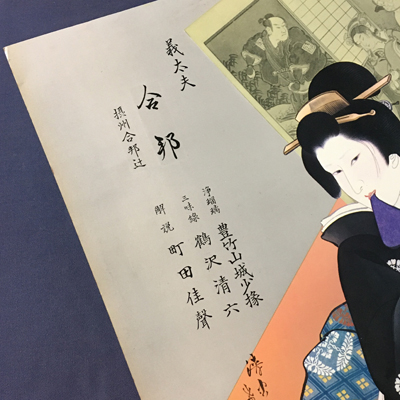 義太夫
合邦
摂州合邦辻
浄瑠璃 豊竹山城少掾
三味線 鶴沢清六
解説 町田佳聲